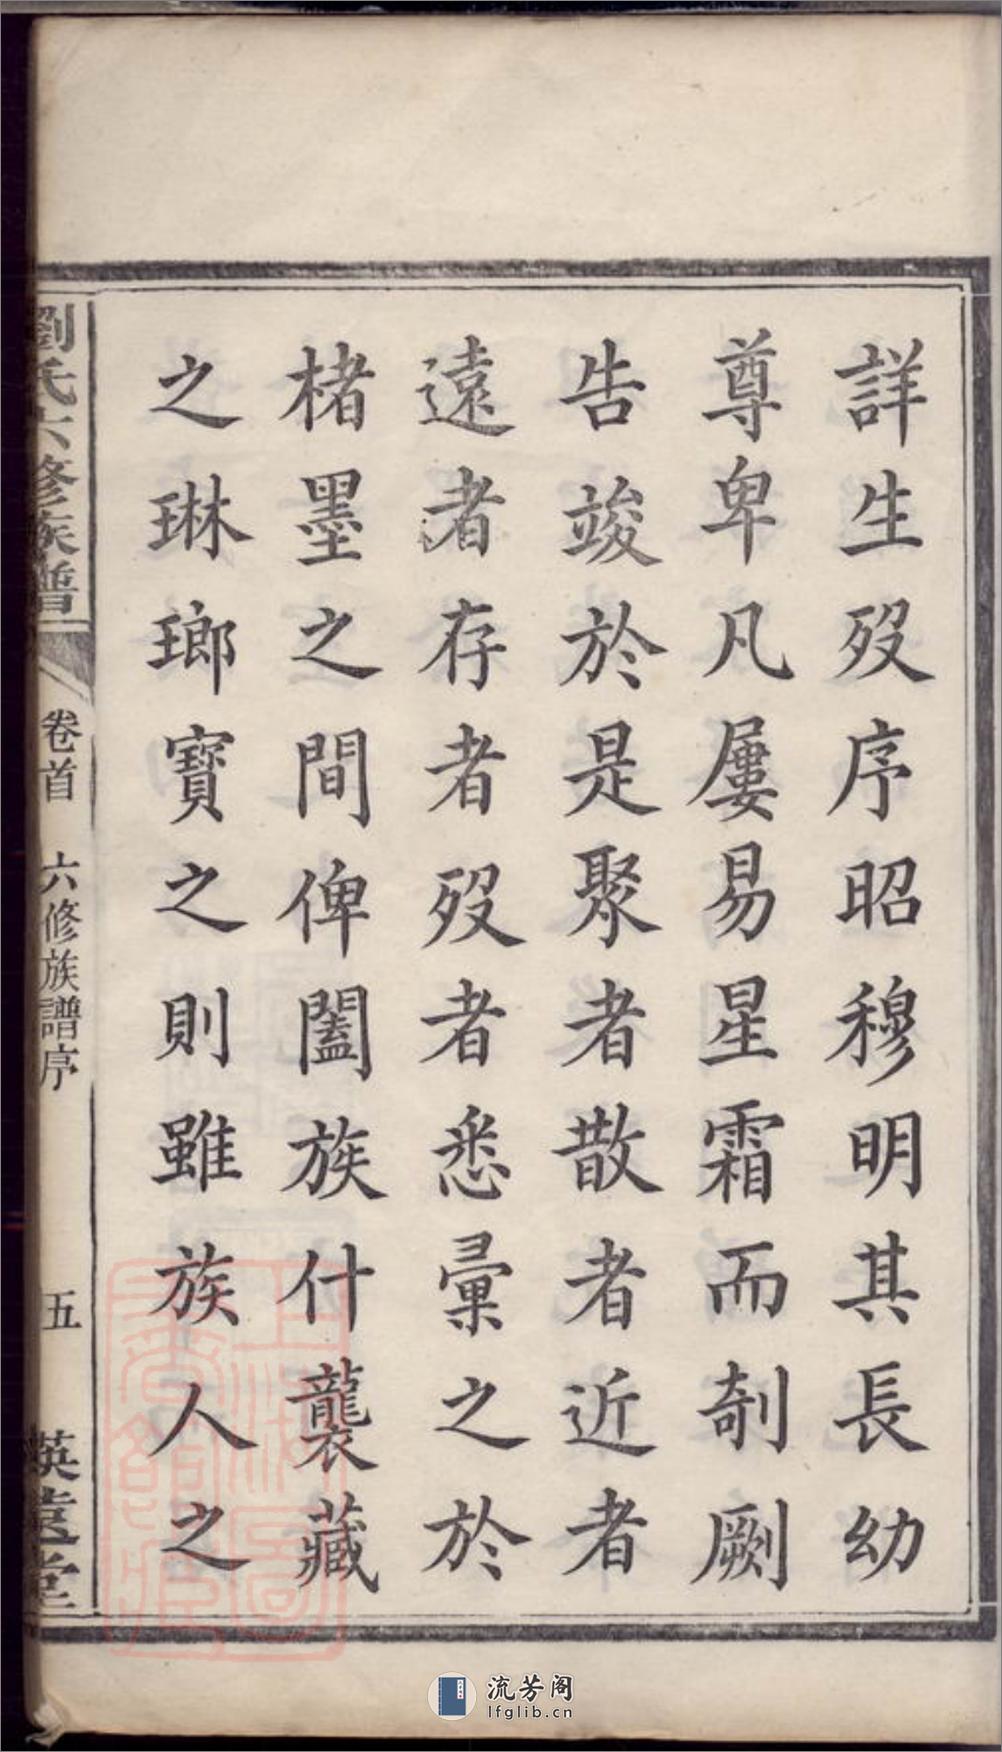 詳生歿序昭穆明其長幼
尊卑凡屢易星霜而剞劂
告竣於是聚者散者近者
遠者存者歿者悉彙之於
楮墨之間俾闔族什襲藏
之琳瑯寶之則雖族人之
劉氏六修族譜
卷首
六修族譜序
五
英遠堂
流芳阁
lfglib.cn